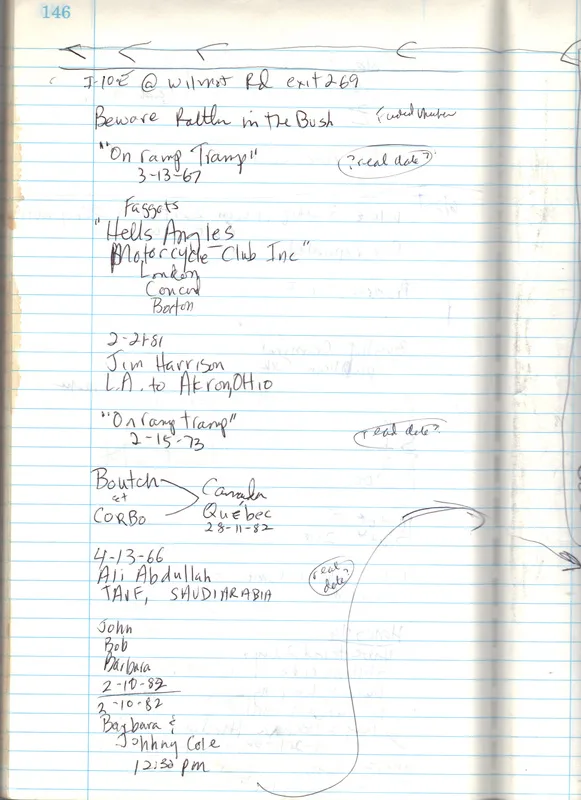 146
I-10E @ Wilmot Rd exit 269
Beware Rattler in the Bush
"On ramp Tramp" ?real date?
3-13-67
Faggots
"Hells Angles
Motorcycle Club Inc"
London
Concord
Barton
2-21-81
Jim Harrison
L.A. to Akron, OHio
"On ramp tramp"
2-15-73 real date?
Boutch
et
CORBO
Canada
Québec
28-11-82
4-13-66
Ali Abdullah
TAIF, SAUDI ARABIA
real
date?
John
Bob
Barbara
2-10-82
2-10-82
Barbara &
Johhny Cole
12:30 pm